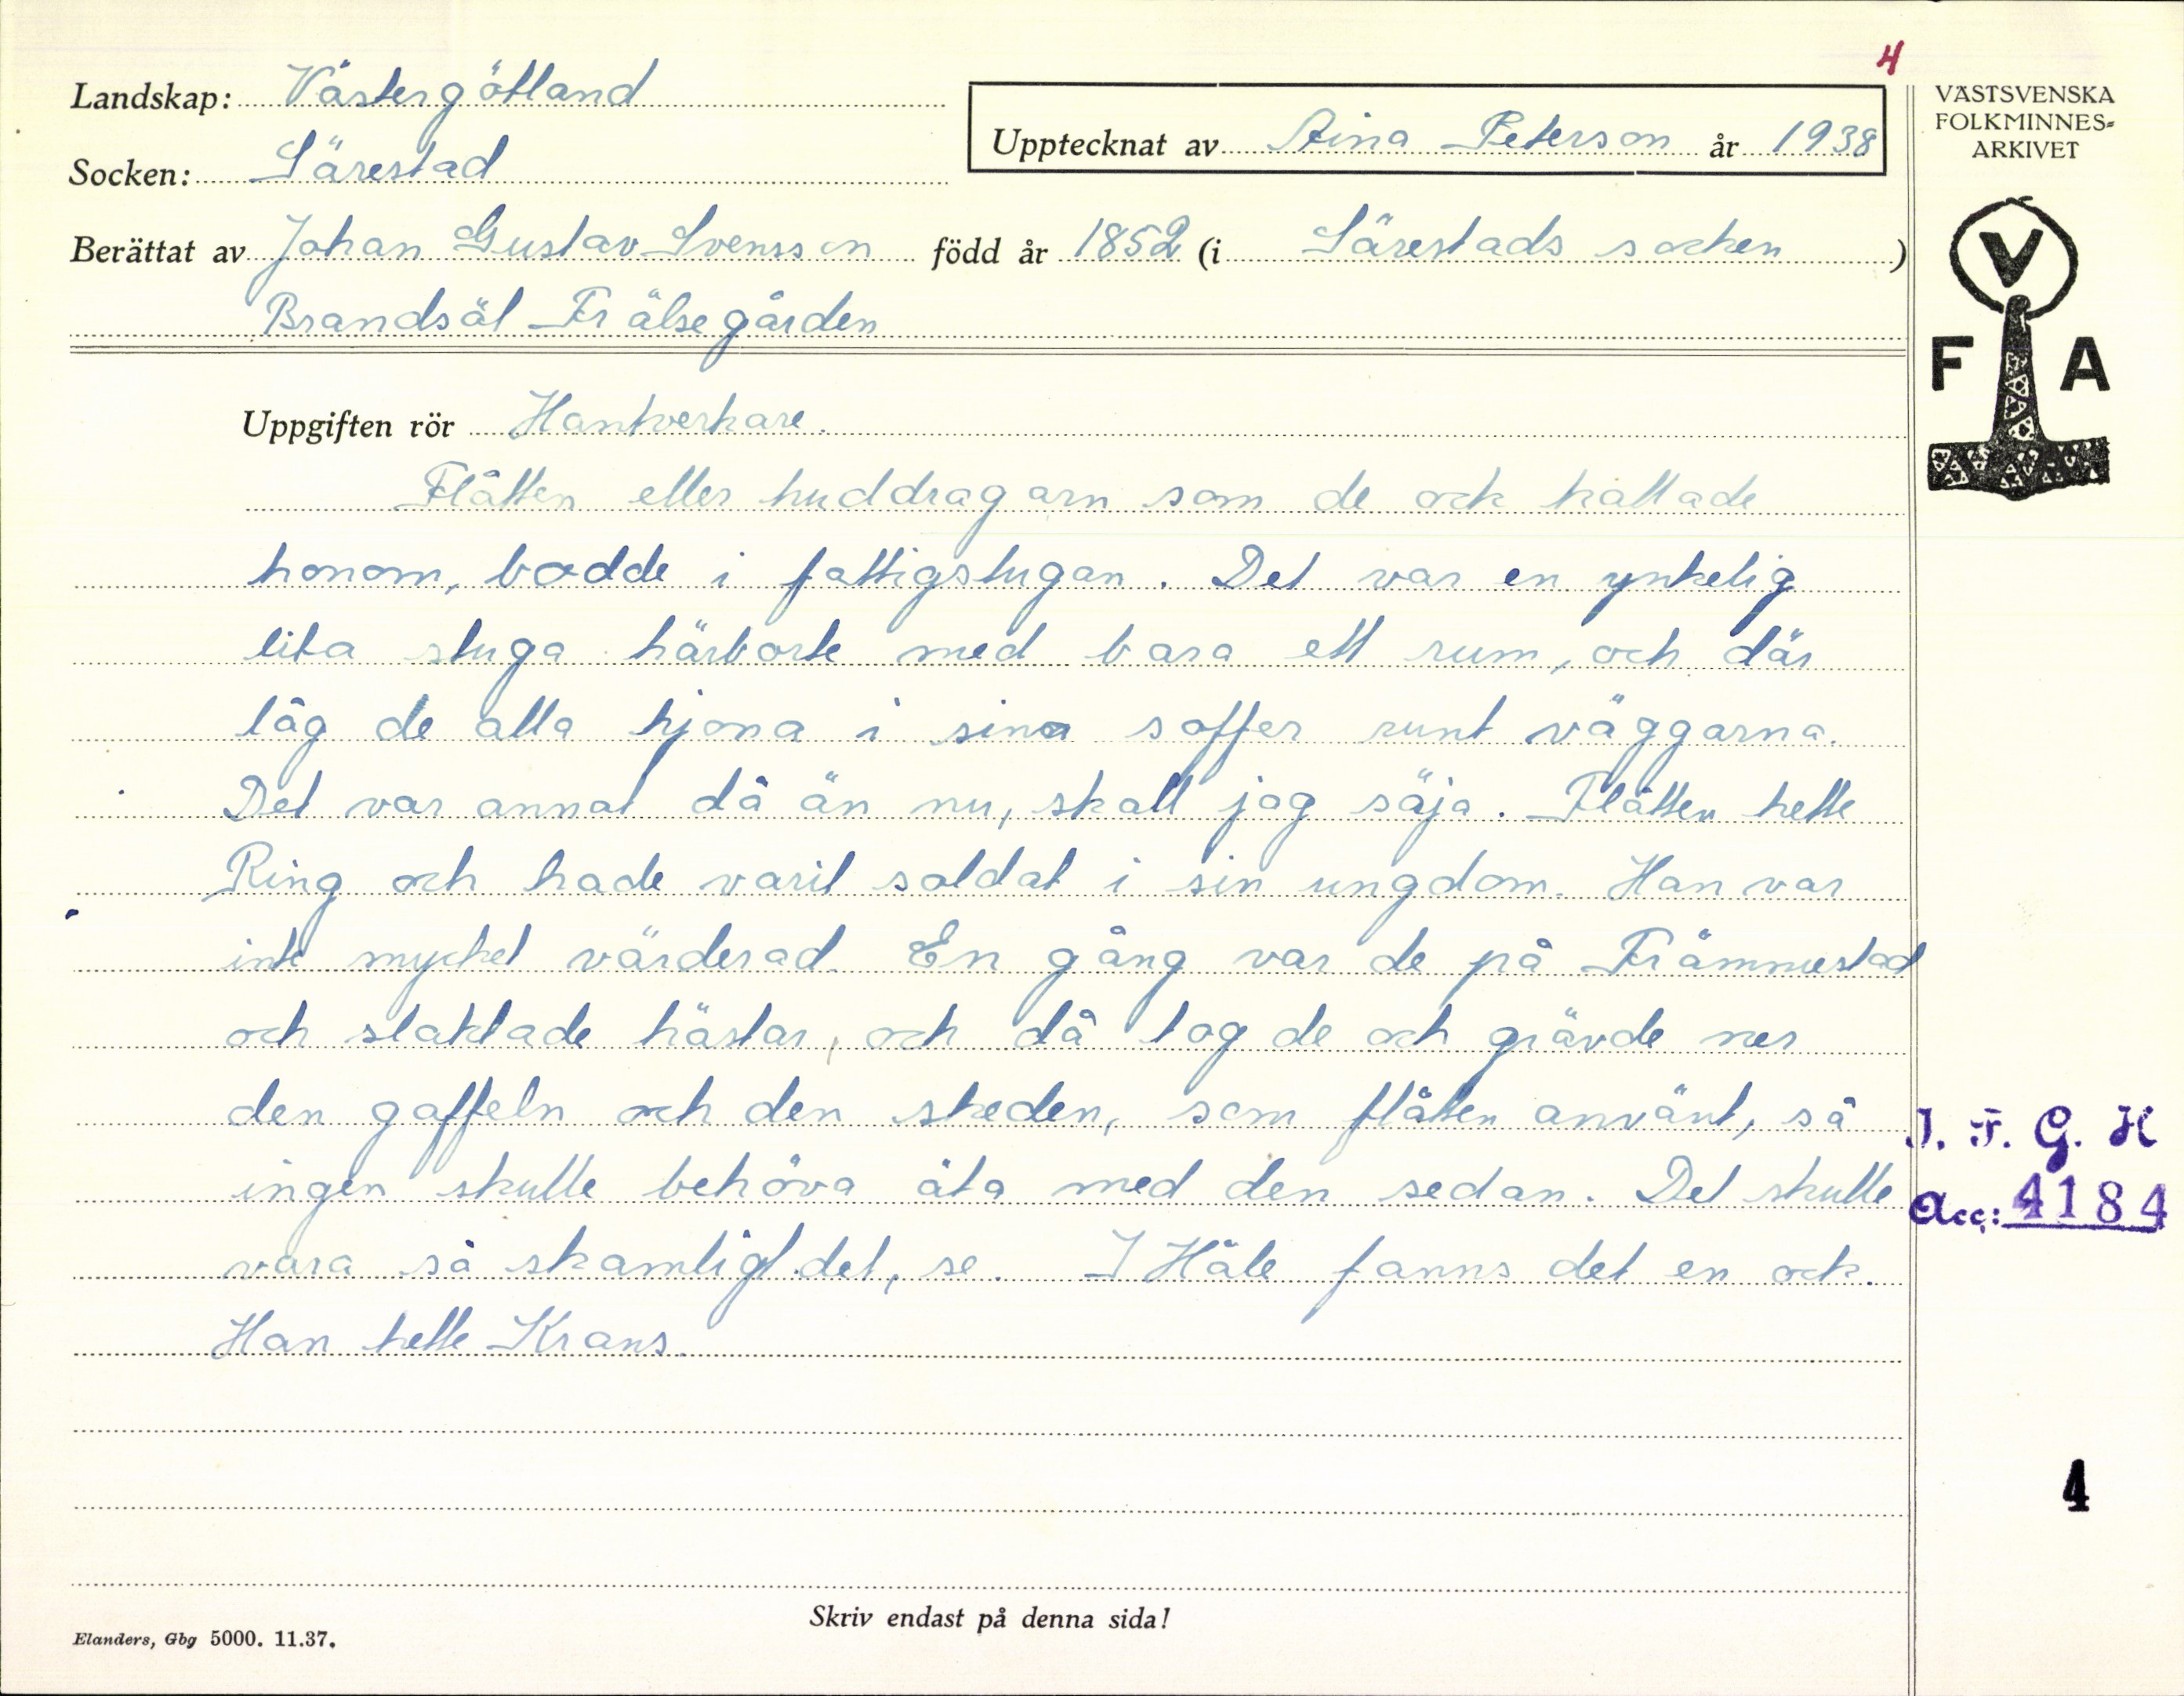 4
Landskap: Västergötland
Upptecknat av Aina Peterson år 1938
Socken: Särestad
Berättat av Johan Gustav Svensson född år 1852 (i Särestads socken)
Brandsäl Frälsegården
Uppgiften rör Hantverkare.
Flåtten eller huddragarn som de ock kallade
honom, bodde i fattigstugan. Det var en ynkelig
lita stuga härborte med bara ett rum, och där
låg de alla hjona i sina soffer runt väggarna.
Det var annat då än nu, skall jag säja. Flåtten hette
Ring och hade varit soldat i sin ungdom. Han var
inte mycket värderad. En gång var de på Främmestad
och slaktade hästar, och då tog de och grävde ner
den gaffeln och den skeden, som flåtten använt, så
ingen skulle behöva äta med den sedan. Det skulle
vara så skamligt det, se. I Håle fanns det en ock.
Han hette Krans.
Skriv endast på denna sida!
Elanders, Gbg 5000. 11.37.
VÄSTSVENSKA
FOLKMINNES-
ARKIVET
V
F A
I. F. G. H
Acc: 4184
4